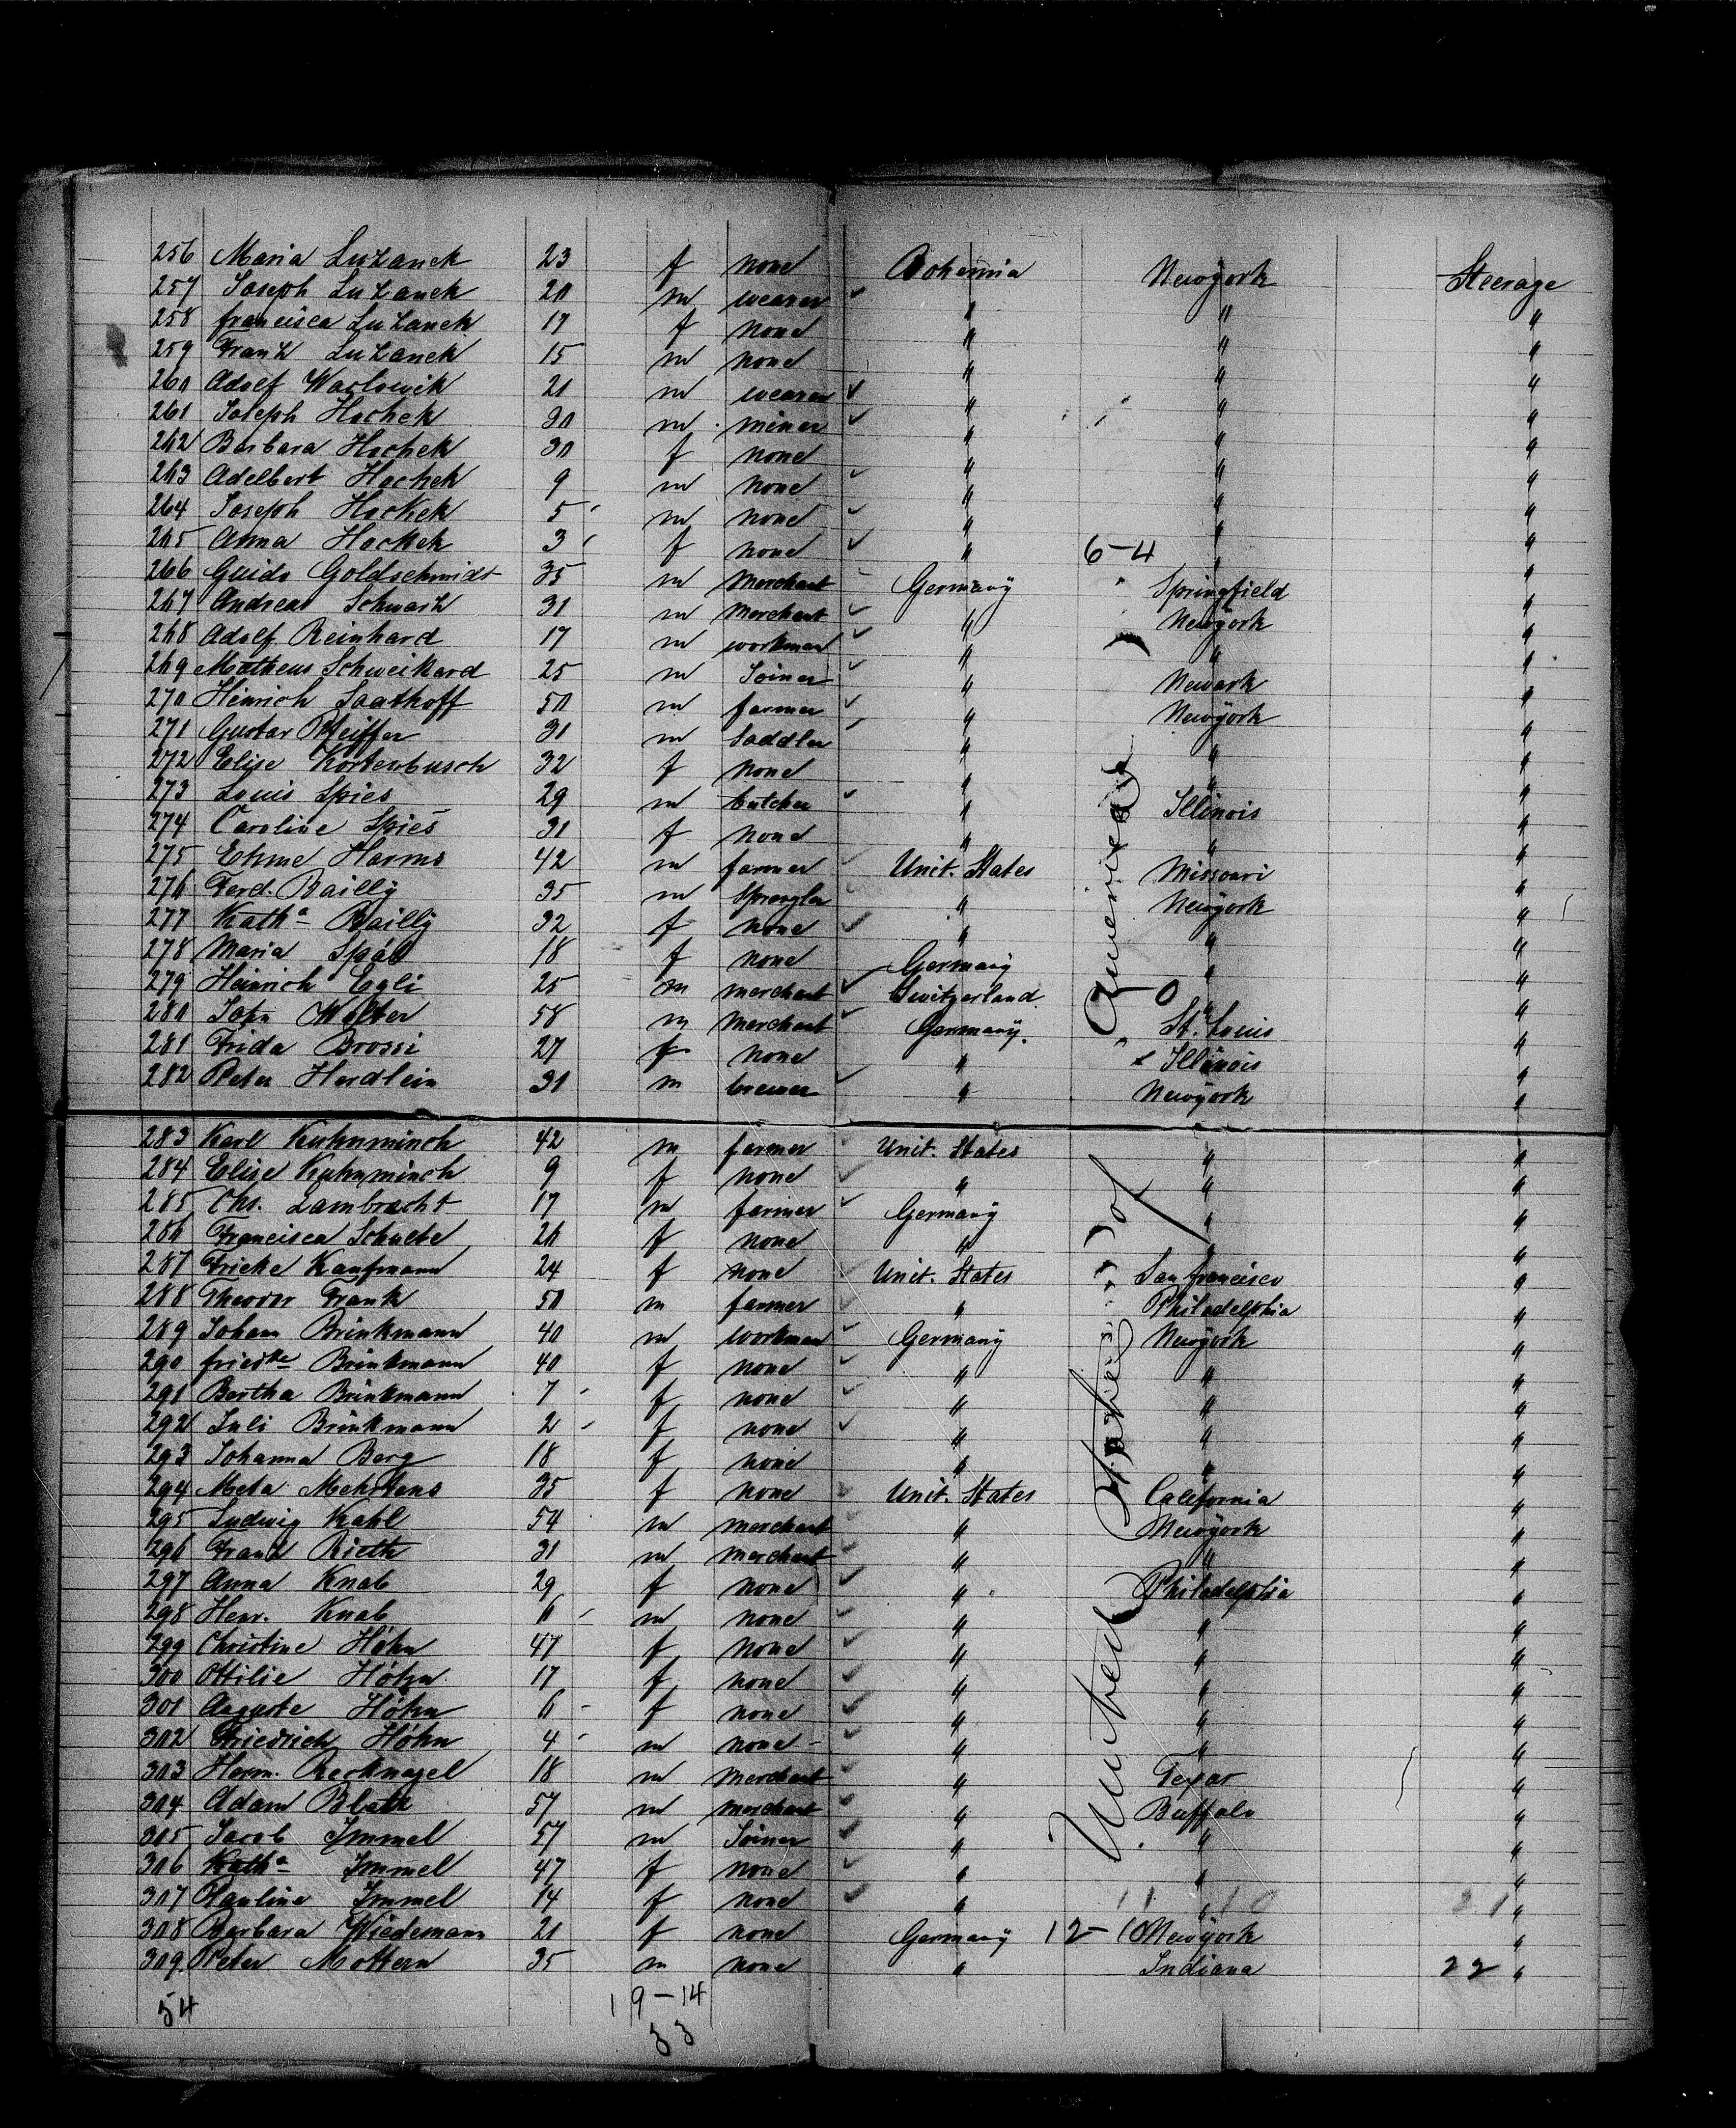 256 Maria Luzanek 23 f none Bohemia Newyork Steerage
257 Joseph Luzanek 20 m weaver " " "
258 francisca Luzanek 17 f none " " "
259 Franz Luzanek 15 m none " " "
260 Adolf Waclowik 21 m weaver " " "
261 Joseph Hochek 30 m miner " " "
262 Barbara Hochek 30 f none " " "
263 Adelbert Hochek 9 m none " " "
264 Joseph Hochek 5 m none " " "
265 Anna Hochek 3 f none " 6-4 " "
266 Guido Goldschmidt 35 m Merchant Germany Springfield "
267 Andreas Schwarz 31 m Merchant " Newyork "
268 Adolf Reinhard 17 m workman " " "
269 Matheus Schweikard 25 m Joiner " Newark "
270 Heinrich Saathoff 50 m farmer " Newyork "
271 Gustav Pfeiffer 31 m Saddler " " "
272 Elise Kortenbusch 32 f none " " "
273 Louis Spies 29 m butcher " Illinois "
274 Caroline Spies 31 f none " " "
275 Ehme Harms 42 m farmer Unit. States Missouri "
276 Ferd. Bailly 35 m Sprengler " Newyork "
277 Katha Bailly 32 f none " " "
278 Maria 18 f none Germany " "
279 Heinrich Egli 25 m merchant Switzerland 0 " "
280 John Wolter 58 m Merchant Germany. St. Louis "
281 Frida Brossi 27 f none " Illinois "
282 Peter Herdlein 31 m brewer " Newyork "
283 Karl Kuhnmünch 42 m farmer Unit. States " "
284 Elise Kuhnmünch 9 f none " " "
285 Chr. Lambrecht 17 m farmer Germany " "
286 Francisca Schulte 20 f none " " "
287 Fricke Kaufmann 24 f none Unit. States San francisco "
288 Theodor Frank 50 m farmer " Philadelphia "
289 Johann Brinkmann 40 m workman Germany Newyork "
290 friedke Brinkmann 40 f none " " "
291 Bertha Brinkmann 7 f none " " "
292 Juli Brinkmann 2 f none " " "
293 Johanna Berg 18 f none " " "
294 Meta Mehrtens 35 f none Unit. States California "
295 Ludwig Kahl 54 m merchant " Newyork "
296 Franz Rieth 31 m merchant " " "
297 Anna Knab 29 f none " Philadelphia "
298 Henr. Knab 6 m none " " "
299 Christine Höhn 47 f none " " "
300 Ottilie Höhn 17 f none " " "
301 Auguste Höhn 6 f none " " "
302 Friedrich Höhn 4 m none " " "
303 Herm. Recknagel 18 m Merchant " Texas "
304 Adam 57 m merchant " Buffalo "
305 Jacob Immel 57 m Joiner " " "
306 Katha Immel 47 f none " " "
307 Pauline Immel 14 f none " 11 10 " 21 "
308 Barbara Wiedemann 21 f none Germany 12-10 Newyork "
309. Peter Mottern 35 m none " Indiana 22 "
54 19-14
33
United States of America